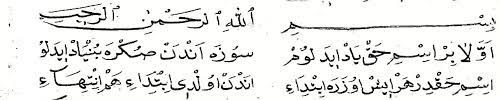 بسم الله الرحمن الرحيم
اولا بر اسم حق ياد ايدلوم سوزه اندن صكره بنياد ايدلو
اسم حقدر هر ايش اوزره ابتداء اندن اولدى ابتداء هم انتهاء